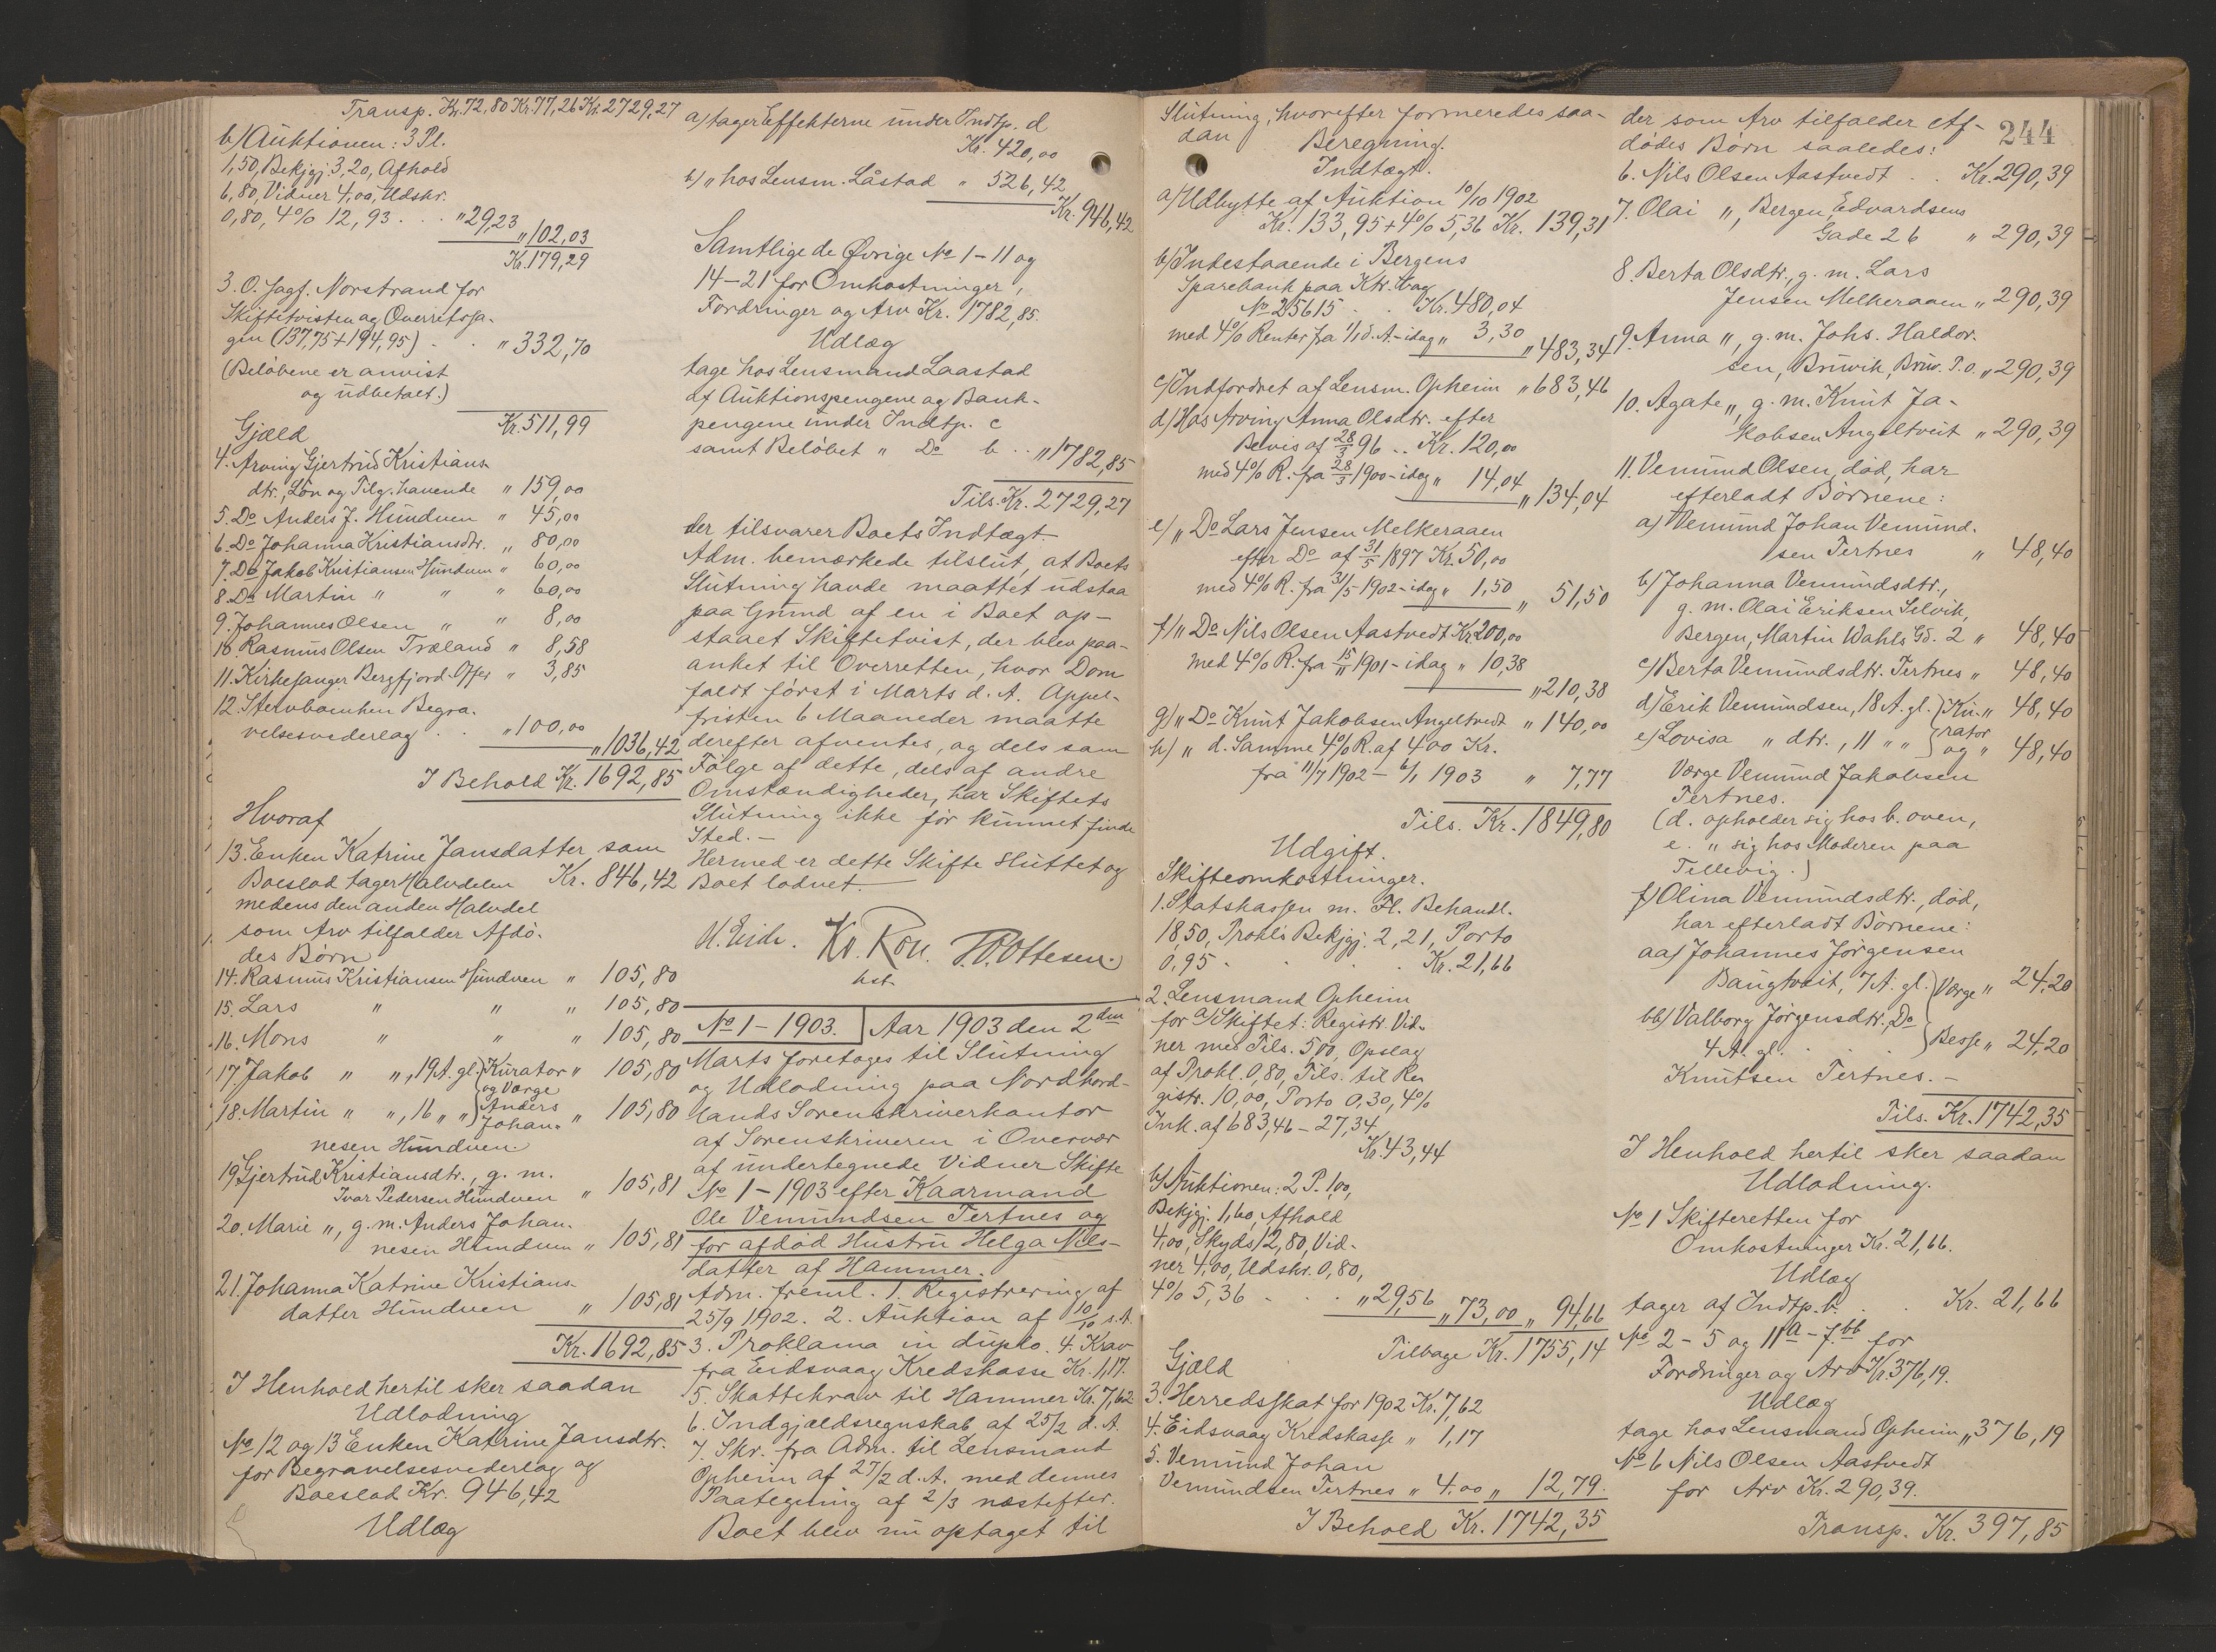 Transp. Kr. 72,80 Kr. 77,26 Kr. 2729,27
b) Auktionen: 3 Pl.
1,50, Bekjgj. 3,20, Afhold
6,80, Vidner 4,00, Udskr.
0,80, 4% 12,93 . . . " 29,23
" 102,03
Kr. 179,29
3. O. Sagf. Norstrand for
Skiftetvisten og Overretssa-
gen (137,75 + 194,95) . . " 332,70
(Beløbene er anvist
og udbetalt.)
Kr. 511,99
Gjæld
4. Arving Gjertrud Kristians-
dtr., Løn og Tilg. havende " 159,00
5. Do Anders J. Hundven " 45,00
6. Do Johanna Kristiansdtr. " 80,00
7. Do Jakob Kristiansen Hundven " 60,00
8. Do Martin " " " 60,00
9. Johannes Olsen " " 8,00
10. Rasmus Olsen Træland " 8,58
11. Kirkesanger Bergfjord-Offer " 3,85
12. Stervboenken Begra-
velsesvederlag . . " 100,00
" 1036,42
I Behold Kr. 1692,85
Hvoraf
13. Enken Katrine Jansdatter som
Boeslod tager Halvdelen Kr. 846,42
medens den anden Halvdel
som Arv tilfalder Afdø-
des Børn
14. Rasmus Kristiansen Hundven " 105,80
15. Lars " " " 105,80
16. Mons " " " 105,80
17. Jakob " ", 19 A. gl. } Kurator " 105,80
og Værge
18. Martin " ", 16 " " } Anders " 105,80
Johan-
nesen Hundven.
19. Gjertrud Kristiansdtr., g. m.
Ivar Pedersen Hundven " 105,81
20. Marie ", g. m. Anders Johan-
nesen Hundven " 105,81
21. Johanna Katrine Kristians-
datter Hundven " 105,81
Kr. 1692,85
I Henhold hertil sker saadan
Udlodning
No 12 og 13 Enken Katrine Jansdtr.
for Begravelsesvederlag og
Boeslod Kr. 946,42
Udlæg
a) tager Effekterne under Indtp. d
Kr. 420,00
b) " hos Lensm. Låstad " 526,42
Kr. 946,42
Samtlige de Øvrige No 1-11 og
14-21 for Omkostninger,
Fordringer og Arv Kr. 1782,85.
Udlæg
tage hos Lensmand Laastad
af Auktionspengene og Bank-
pengene under Indtp. c
samt Beløbet " Do b . . " 1782,85
Tils. Kr. 2729,27
der tilsvarer Boets Indtægt.-
Adm. bemærkede tilslut, at Boets
Slutning havde maattet udstaa
paa Grund af en i Boet op-
staaet Skiftetvist, der blev paa-
anket til Overretten, hvor Dom
faldt først i Marts d. A. Appel-
fristen 6 Maaneder maatte
derefter afventes, og dels som
Følge af dette, dels af andre
Omstændigheder, har Skiftets
Slutning ikke før kunnet finde
Sted.-
Hermed er dette Skifte sluttet og
Boet lodnet.-
Kr. Kou. Ottesen.
bst.
No 1-1903. Aar 1903 den 2den
Marts foretoges til Slutning
og Udlodning paa Nordhord-
lands Sorenskriverkontor
af Sorenskriveren i Overvær
af undertegnede Vidner Skifte
No 1-1903 efter Kaarmand
Ole Vemundsen Tertnes og
for afdød Hustru Helga Nils-
datter af Hammer.
Adm. freml. 1. Registrering af
25/9 1902. 2. Auktion af 10/10 s. A.
3. Proklama in duplo. 4. Krav
fra Eidsvaag Kredskasse Kr. 1,17.
5. Skattekrav til Hammer Kr. 7,62
6. Indgjældsregnskab af 25/2 d. A.
7. Skr. fra Adm. til Lensmand
Opheim af 27/2 d. A. med dennes
Paategning af 2/3 næstefter.
Boet blev nu optaget til
Slutning, hvorefter formeredes saa-
dan Beregning.
Indtægt.
a) Udbytte af Auktion 10/10 1902
Kr. 133,95 + 4% 5,36 Kr. 139,31
b) Indestaaende i Bergens
Sparebank paa Ktr. bog
No 25615 . . Kr. 480,04
med 4% Renter fra 1/1 d. A.-idag " 3,30
" 483,34
c) Indfordret af Lensm. Opheim " 683,46
d) Hos Arving Anna Olsdtr. efter
Bevis af 28/3 96 . . Kr. 120,00
med 4% R. fra 28/3 1900-idag " 14,04
" 134,04
e) " Do Lars Jensen Melkeraaen
efter Do af 31/5 1897 Kr. 50,00
med 4% R. fra 31/5 1902-idag " 1,50
" 51,50
f) " Do Nils Olsen Aastvedt Kr. 200,00
med 4% R. fra 15/11 1901-idag " 10,38
" 210,38
g) " Do Knut Jakobsen Angeltvedt " 140,00
h) " d. Samme 4% R. af 400 Kr.
fra 11/7 1902 - 6/1 1903 " 7,77
Tils. Kr. 1849,80
Udgift.
Skifteomkostninger.
1. Statskassen m. Fl. Behandl.
18,50, Prokl's Bekjgj. 2,21, Porto
0,95 . . . . Kr. 21,66
2. Lensmand Opheim
for a) Skiftet: Registr. Vid-
ner med Tils. 5,00, Opslag
af Prokl. 0,80, Tils. til Re-
gistr. 10,00, Porto 0,30, 4%
Ink. af 683,46 - 27,34
Kr. 43,44
b) Auktionen: 2 P. 1,00,
Bekjgj. 1,60, Afhold
4,00, Skyds 12,80, Vid-
ner 4,00, Udskr. 0,80,
4% 5,36 . . . " 29,56
" 73,00 " 94,66
Tilbage Kr. 1755,14
Gjæld
3. Herredsskat for 1902 Kr. 7,62
4. Eidsvaag Kredskasse " 1,17
5. Vemund Johan
Vemundsen Tertnes " 4,00 " 12,79.
I Behold Kr. 1742,35
244
der som Arv tilfalder Af-
dødes Børn saaledes:
6. Nils Olsen Aastvedt . . Kr. 290,39
7. Olai ", Bergen, Edvardsens
Gade 26 " 290,39
8. Berta Olsdtr., g. m. Lars
Jensen Melkeraaen " 290,39
9. Anna ", g. m. Johs. Haldor-
sen, Bruvik, Bruv. P.o. " 290,39
10. Agate ", g. m. Knut Ja-
kobsen Angeltveit " 290,39
11. Vemund Olsen, død, har
efterladt Børnene:
a) Vemund Johan Vemund-
sen Tertnes " 48,40
b) Johanna Vemundsdtr.,
g. m. Olai Eriksen Selvik,
Bergen, Martin Wahls Gd. 2 " 48,40
c) Berta Vemundsdtr. Tertnes " 48,40
d) Erik Vemundsen, 18 A. gl. } Ku- " 48,40
rator
e) Lovisa " dtr., 11 " " } og " 48,40
Værge Vemund Jakobsen
Tertnes.
(d. opholder sig hos b. oven,
e. " sig hos Moderen paa
Tellevig.)
f) Olina Vemundsdtr., død,
har efterladt Børnene:
aa) Johannes Jørgensen
Baugtveit, 7 A. gl. } Værge " 24,20
bb) Valborg Jørgensdtr., Do
4 A. gl. . } Besse " 24,20
Knutsen Tertnes.-
Tils. Kr. 1742,35
I Henhold hertil sker saadan
Udlodning.
No 1 Skifteretten for
Omkostninger Kr. 21,66.
Udlæg
tager af Indtp. b. . . Kr. 21,66
No 2-5 og 11 a-f. bb for
Fordringer og Arv Kr. 376,19.
Udlæg
tage hos Lensmand Opheim " 376,19
No 6 Nils Olsen Aastvedt
for Arv Kr. 290,39.
Transp. Kr. 397,85